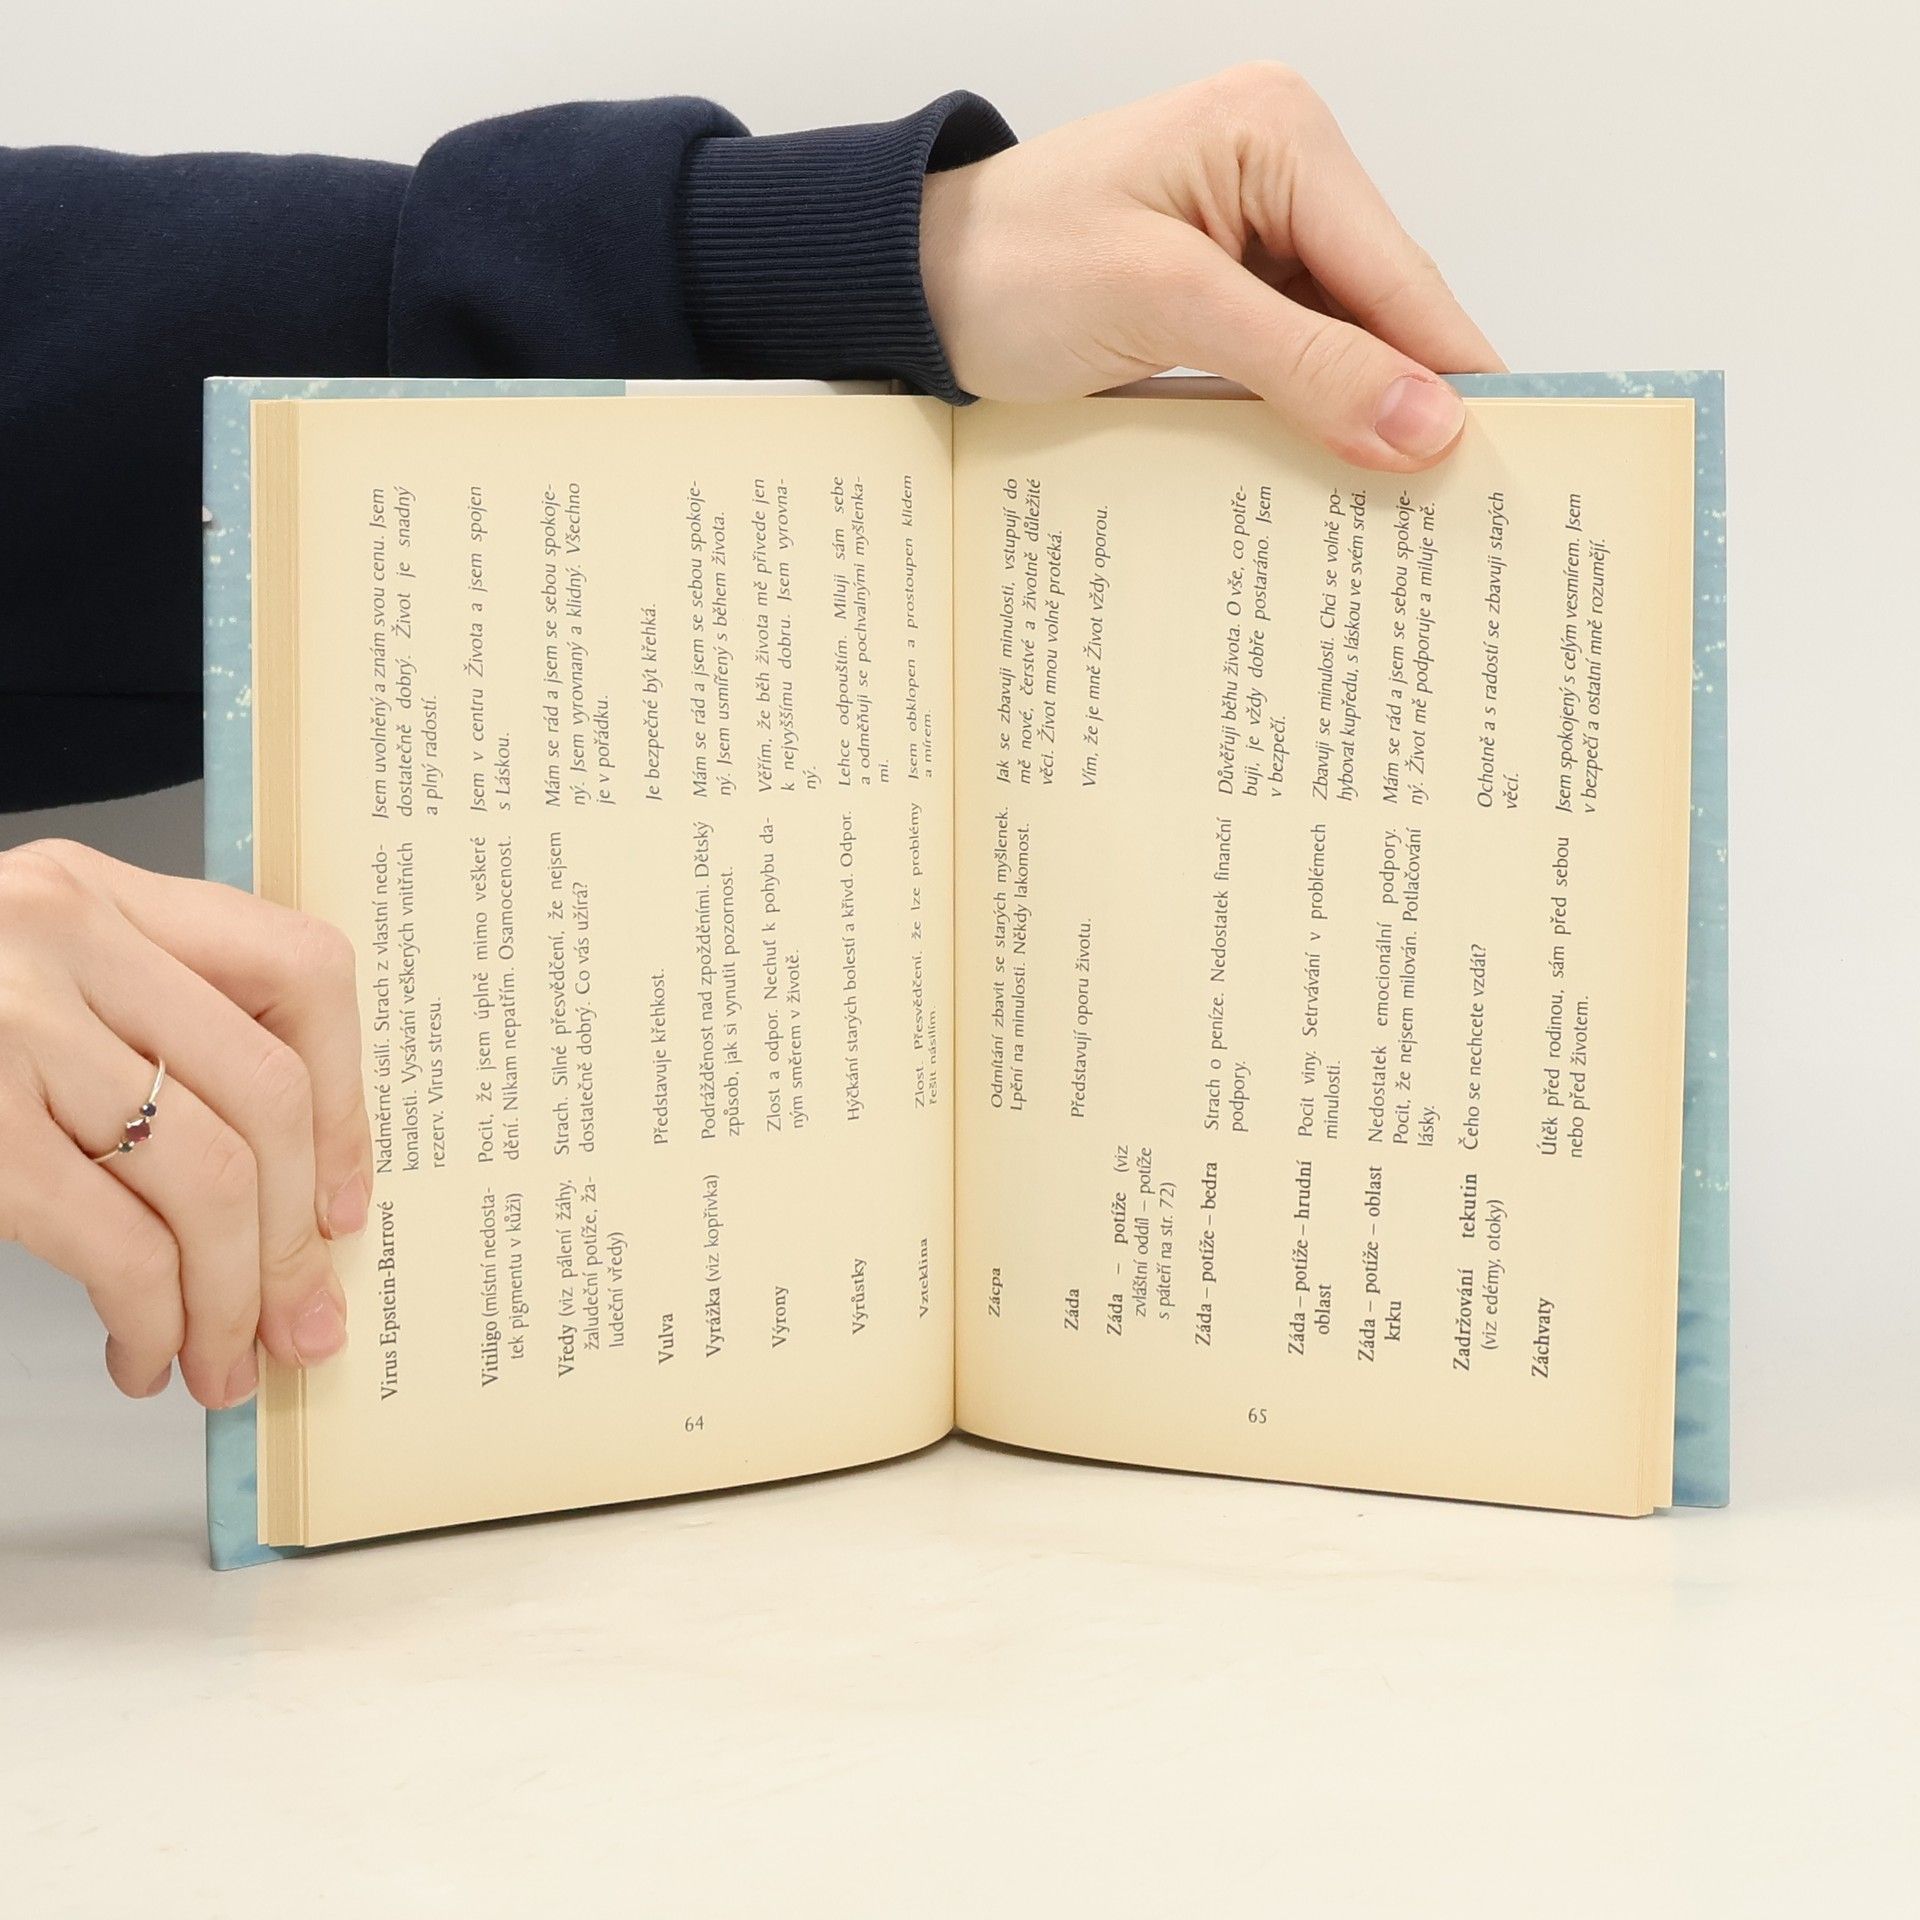 Virus Epstein-Barrové
Nadměrné úsilí. Strach z vlastní nedo-
konalosti. Vysávání veškerých vnitřních
rezerv. Virus stresu.
Jsem uvolněný a znám svou cenu. Jsem
dostatečně dobrý. Život je snadný
a plný radostí.
Vitiligo (místní nedosta-
tek pigmentu v kůži)
Pocit, že jsem úplně mimo veškeré
dění. Nikam nepatřím. Osamocenost.
Jsem v centru Života a jsem spojen
s Láskou.
Vředy (viz pálení žáhy,
žaludeční potíže, ža-
ludeční vředy)
Strach. Silné přesvědčení, že nejsem
dostatečně dobrý. Co vás užírá?
Mám se rád a jsem se sebou spokoje-
ný. Jsem vyrovnaný a klidný. Všechno
je v pořádku.
Vulva
Představuje křehkost.
Je bezpečné být křehká.
Vyrážka (viz kopřivka)
Podrážděnost nad zpožděními. Dětský
způsob, jak si vynutit pozornost.
Mám se rád a jsem se sebou spokoje-
ný. Jsem usmířený s během života.
Výrony
Zlost a odpor. Nechuť k pohybu da-
ným směrem v životě.
Věřím, že běh života mě přivede jen
k nejvyššímu dobru. Jsem vyrovna-
ný.
Výrůstky
Hýčkání starých bolestí a křivd. Odpor.
Lehce odpouštím. Miluji sám sebe
a odměňuji se pochvalnými myšlenka-
mi.
Vzteklina
Zlost. Přesvědčení, že lze problémy
řešit násilím.
Jsem obklopen a prostoupen klidem
a mírem.
64
Zácpa
Odmítání zbavit se starých myšlenek.
Lpění na minulosti. Někdy lakomost.
Jak se zbavuji minulosti, vstupují do
mě nové, čerstvé a životně důležité
věci. Život mnou volně protéká.
Záda
Představují oporu životu.
Vím, že je mně Život vždy oporou.
Záda – potíže (viz
zvláštní oddíl – potíže
s páteří na str. 72)
Záda – potíže – bedra
Strach o peníze. Nedostatek finanční
podpory.
Důvěřuji běhu života. O vše, co potře-
buji, je vždy dobře postaráno. Jsem
v bezpečí.
Záda – potíže – hrudní
oblast
Pocit viny. Setrvávání v problémech
minulosti.
Zbavuji se minulosti. Chci se volně po-
hybovat kupředu, s láskou ve svém srdci.
Záda – potíže – oblast
krku
Nedostatek emocionální podpory.
Pocit, že nejsem milován. Potlačování
lásky.
Mám se rád a jsem se sebou spokoje-
ný. Život mě podporuje a miluje mě.
Zadržování tekutin
(viz edémy, otoky)
Čeho se nechcete vzdát?
Ochotně a s radostí se zbavuji starých
věcí.
Záchvaty
Útěk před rodinou, sám před sebou
nebo před životem.
Jsem spokojený s celým vesmírem. Jsem
v bezpečí a ostatní mně rozumějí.
65